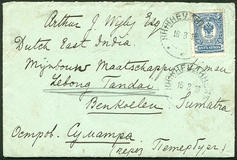 Arthur J Wylz Esq
Dutch East India
Mijnbouw Maatschappij Simau
Lebong Tandai
Benkoelen Sumatra
Остров. Суматра
(через Петербург)